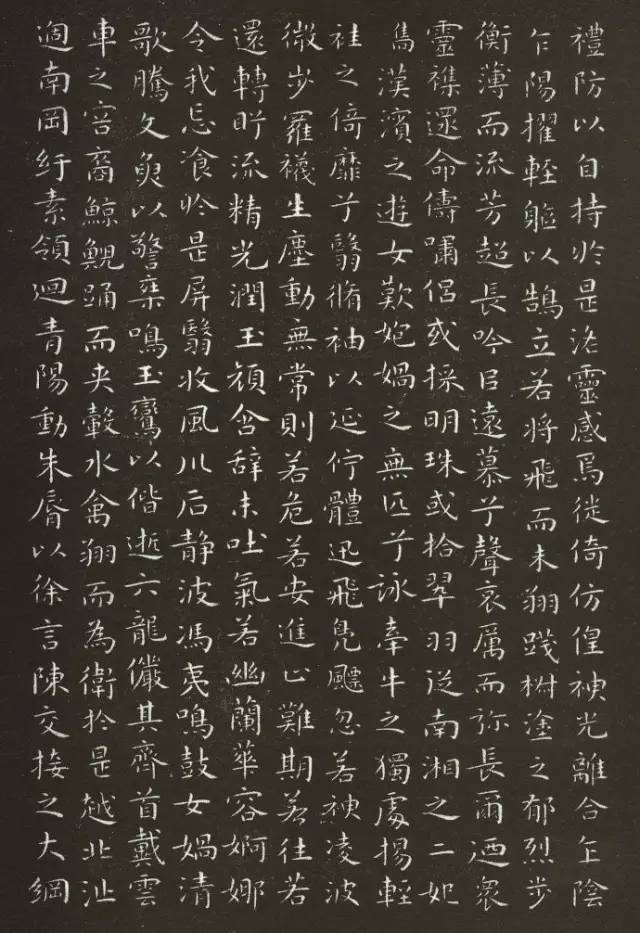 禮防以自持於是洛靈感焉徙倚仿偟神光離合乍陰
乍陽擢輕軀以鵠立若將飛而未翔踐椒塗之郁烈步
衡薄而流芳超長吟㠯遠慕兮聲哀厲而弥長爾迺衆
靈襍遝命儔嘯侶或採明珠或拾翠羽從南湘之二妃
雋漢濱之遊女歎㚿媧之無匹兮詠牽牛之獨處揚輕
袿之倚靡兮翳脩袖以延佇體迅飛鳧飃忽若神凌波
微步羅襪生塵動無常則若危若安進止難期若往若
還轉眄流精光潤玉顏含辞未吐氣若幽蘭華容婀娜
令我忘飡於是屏翳收風川后静波馮夷鳴鼓女媧清
歌騰文魚以警椉鳴玉鸞以偕逝六龍儼其齊首戴雲
車之容裔鯨鯢踊而夾轂水禽翔而為衛於是越北沚
過南岡紆素領迴青陽動朱脣以徐言陳交接之大綱